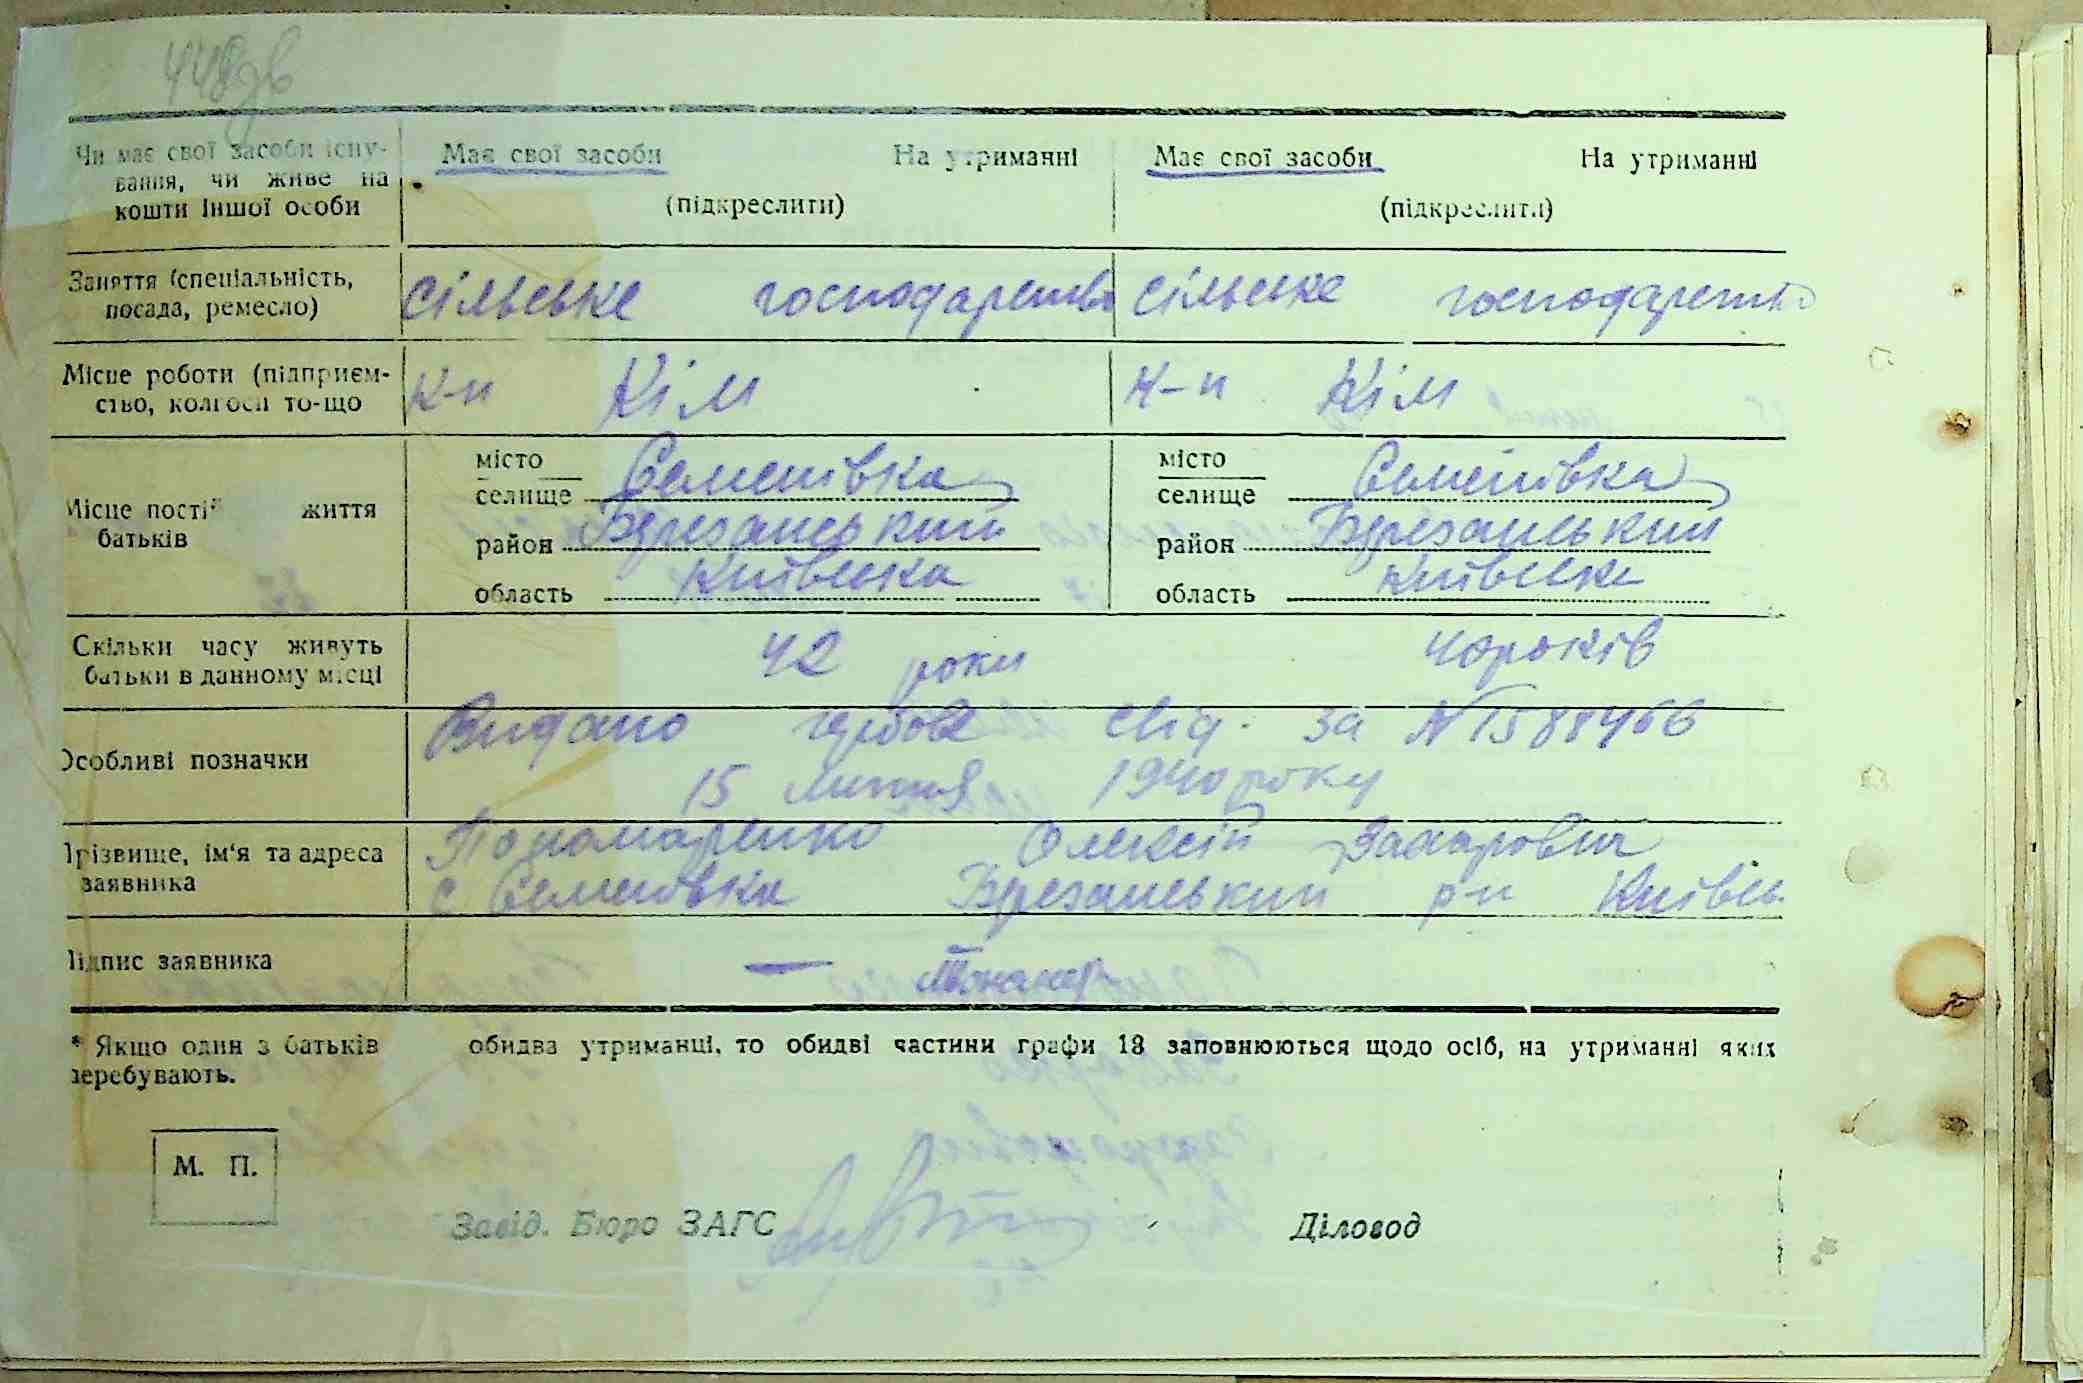 448зв
Чи має свої засоби існу- Має свої засоби На утриманні Має свої засоби На утриманні
вання, чи живе на
кошти іншої особи (підкреслити) (підкреслити)
Заняття (спеціальність, сільське господарство сільське господарство
посада, ремесло)
Місце роботи (підприєм- К-п Кім К-п Кім
ство, колгосп то-що
місто місто
селище Семенівка селище Семенівка
Місце пості життя
батьків район Березанський район Березанський
область Київська область Київська
Скільки часу живуть 42 роки 40 років
батьки в данному місці
Особливі позначки Видано гербове свід. за N 1588466
15 липня 1940 року
Прізвище, ім'я та адреса Пономаренко Олексій Захарович
заявника с Семенівка Березанський р-н Київсь.
Підпис заявника —
* Якщо один з батьків обидва утриманці, то обидві частини графи 13 заповнюються щодо осіб, на утриманні яких
перебувають.
М. П.
Завід. Бюро ЗАГС Діловод